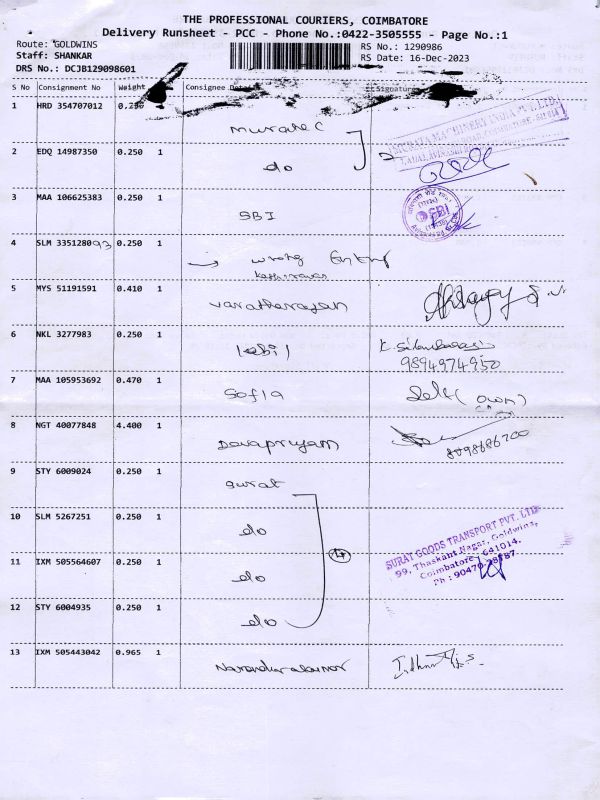 THE PROFESSIONAL COURIERS, COIMBATORE
Delivery Runsheet - PCC - Phone No.:0422-3505555 - Page No.:1
Route: GOLDWINS
RS No.: 1290986
Staff: SHANKAR
RS Date: 16-Dec-2023
DRS No.: DCJB129098601
S No Consignment No Weight Consignee Signature
1 HRD 354707012 0.250
2 EDQ 14987350 0.250 1 do 2
3 MAA 106625383 0.250 1 SBI
4 SLM 335128093 0.250 1 wrong Entry
5 MYS 51191591 0.410 1 varatharajan
6 NKL 3277983 0.250 1
9894974950
7 MAA 105953692 0.470 1 Sofia Self (own)
8 NGT 40077848 4.400 1 Devapriyam
8098686200
9 STY 6009024 0.250 1 surat
10 SLM 5267251 0.250 1 do
11 IXM 505564607 0.250 1 do 4
12 STY 6004935 0.250 1 do
SURAT GOODS TRANSPORT PVT. LTD
99, Thaskant Nagar, Goldwins,
Coimbatore - 641014.
13 IXM 505443042 0.965 1